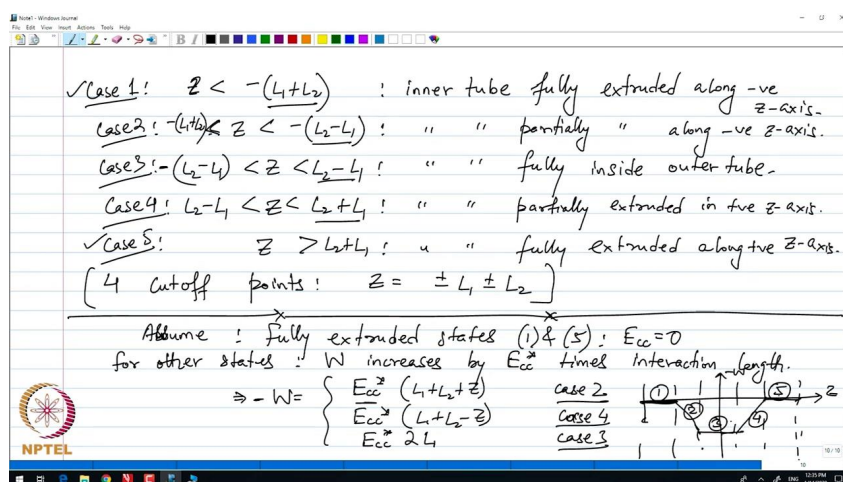 Note1 - Windows Journal
File Edit View Insert Actions Tools Help
✓Case 1: Z < -(L1+L2) : inner tube fully extruded along -ve z-axis.
Case 2: -(L1+L2) < Z < -(L2-L1) : " " partially " along -ve z-axis.
Case 3: -(L2-L1) < Z < L2-L1 : " " fully inside outer tube.
Case 4: L2-L1 < Z < L2+L1 : " " partially extruded in +ve z-axis.
✓Case 5: Z > L2+L1 : " " fully extruded along +ve z-axis.
[4 cutoff points: Z = ± L1 ± L2]
Assume : fully extruded states (1) & (5) : Ecc = 0
for other states : W increases by Ecc* times interaction length.
⇒ -W = { Ecc* (L1+L2+Z) case 2
Ecc* (L1+L2-Z) case 4
Ecc* 2L1 case 3
-W
① ② ③ ④ ⑤ Z
NPTEL
10 / 10
10
ENG 12:35 PM